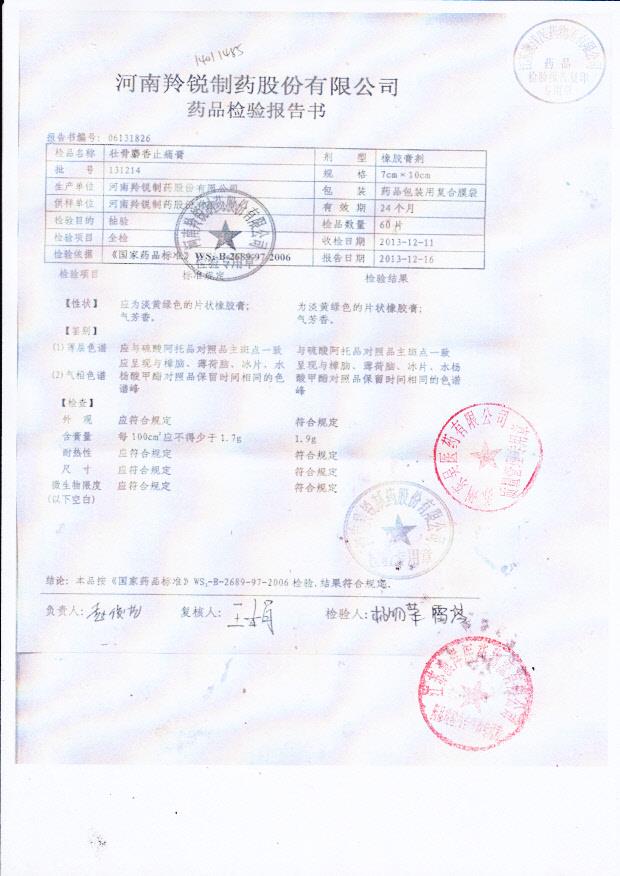 14011485
药品
检验报告复印
专用章
河南羚锐制药股份有限公司
药品检验报告书
报告书编号: 06131826
检品名称 壮骨麝香止痛膏 剂 型 橡胶膏剂
批 号 131214 规 格 7cm×10cm
生产单位 河南羚锐制药股份有限公司 包 装 药品包装用复合膜袋
供样单位 河南羚锐制药股份有限公司 有 效 期 24个月
检验目的 抽验 检品数量 60片
检验项目 全检 收检日期 2013-12-11
检验依据 《国家药品标准》WS₃-B-2689-97-2006 报告日期 2013-12-16
检验专用章
检验项目 标准规定 检验结果
【性状】 应为淡黄绿色的片状橡胶膏; 为淡黄绿色的片状橡胶膏;
气芳香。 气芳香。
【鉴别】
(1)薄层色谱 应与硫酸阿托品对照品主斑点一致 与硫酸阿托品对照品主斑点一致
应呈现与樟脑、薄荷脑、冰片、水 呈现与樟脑、薄荷脑、冰片、水杨
(2)气相色谱 杨酸甲酯对照品保留时间相同的色 酸甲酯对照品保留时间相同的色谱
谱峰 峰
【检查】
外 观 应符合规定 符合规定
含膏量 每100cm²应不得少于1.7g 1.9g
耐热性 应符合规定 符合规定
尺 寸 应符合规定 符合规定
微生物限度 应符合规定 符合规定
(以下空白)
结论: 本品按《国家药品标准》WS₃-B-2689-97-2006检验,结果符合规定。
负责人: 复核人: 检验人: